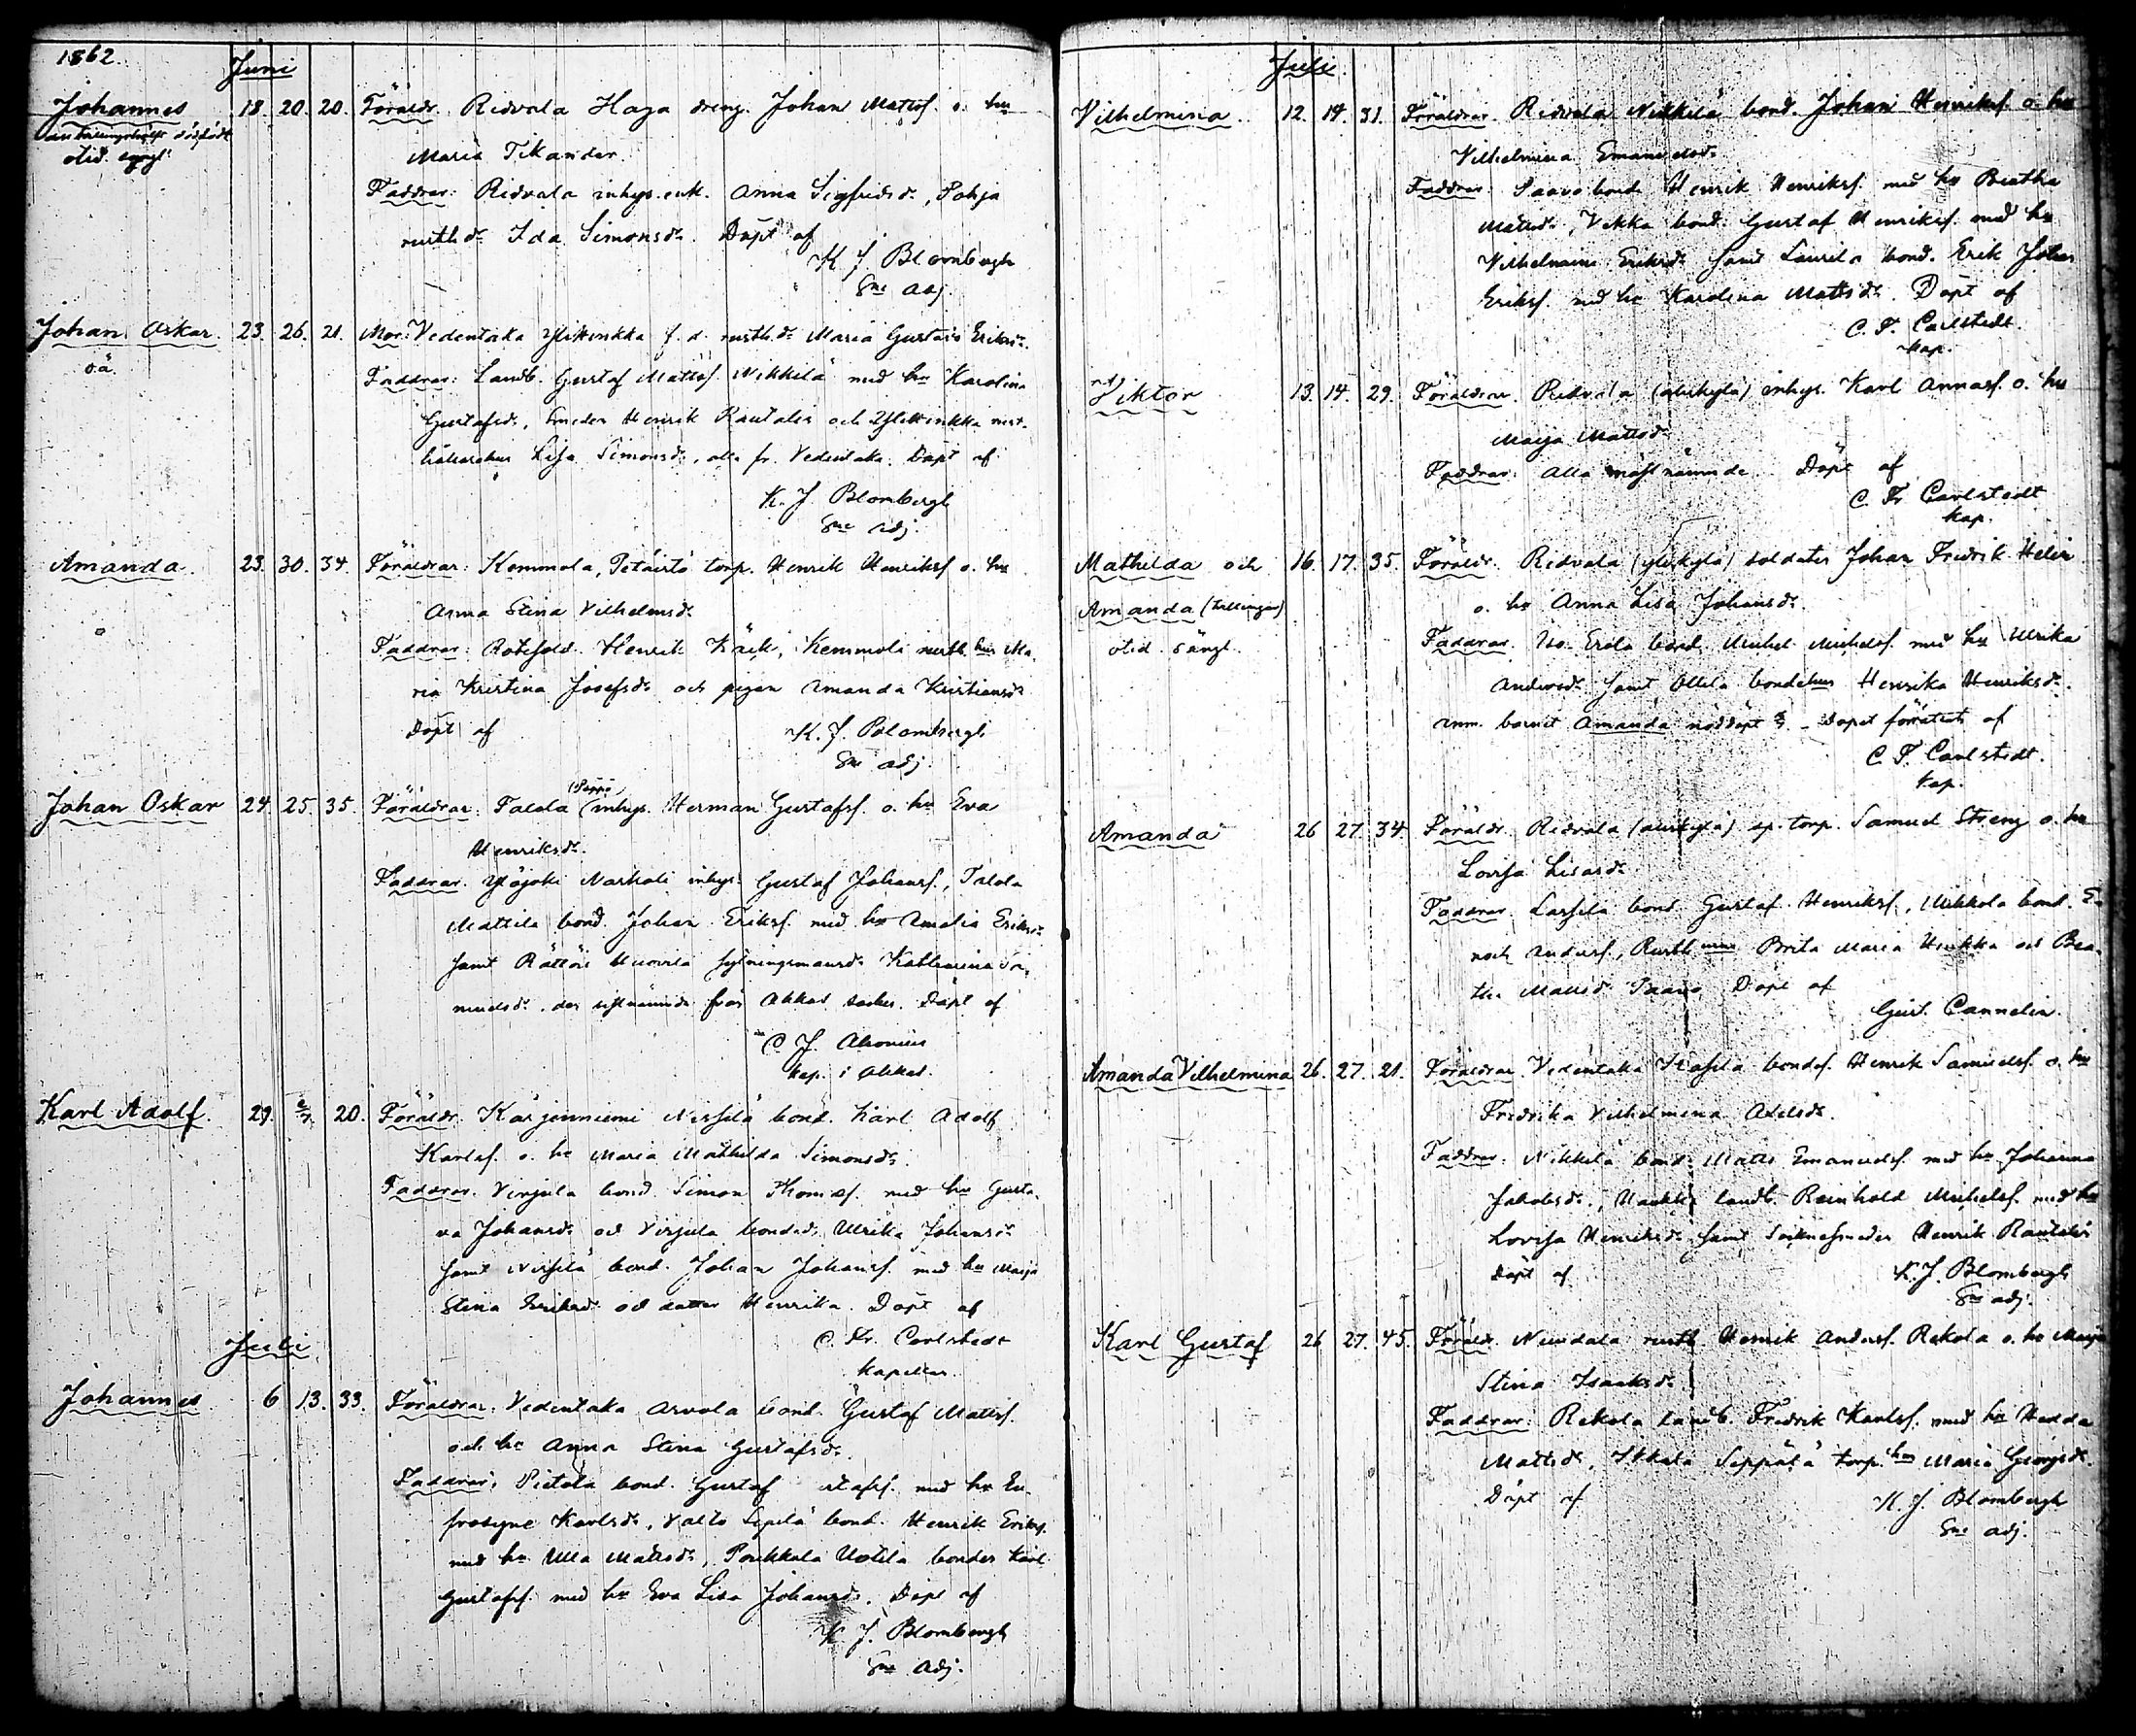 1862.
Juni
Johannes 18 20 20. Föräldr. Ridvala Haga dreng. Johan Mattsf. o. hu
otid. sängl.
Maria Tikander.
Faddrar: Ridvala inhys. enk. Anna Sigfridsdr, Pohja
rusth.dr Ida Simonsdr. Döpt af
K. J. Blombergh
Sne adj.
Johan Oskar. 23. 26. 21. Mor: Vedentaka f. d. rusth.dr Maria Gustava Eriksdr.
oä.
Faddrar: Landb. Gustaf Mattsf. Nikkilä med hu Karolina
Gustafsdr, Smeden Henrik Rautalin och
Lisa Simonsdr, alla fr. Vedentaka. Döpt af
K. J. Blombergh
Sne adj.
Amanda. 23. 30. 34. Föräldrar: Kemmola, torp. Henrik Henriksf o. hu
Anna Stina Vilhelmsdr
Faddrar: Henrik Käck, Kemmola rusth. hus Ma-
ria Kristina Josefsdr och pigan Amanda Kristiansdr
Döpt af K. J. Blombergh
Sne adj.
Johan Oskar 24. 25. 35. Föräldrar: Talala (Seppä) inhys. Herman Gustafsf. o. hu Eva
Henriksdr.
Faddrar. inhys. Gustaf Johansf., Talola
Mattila bond. Johan Eriksf. med hu Amalia Eriksdr
samt Kathrina Sa-
muelsdr. den sistnämnda från Akkas socken. Döpt af
C. J. Alronius
kap. i Akkas.
Karl Adolf. 29. 2/7. 20. Föräldr. Kärjenniemi bond. Karl Adolf
Karlsf. o. hu Maria Mathilda Simonsdr.
Faddrar. bond. Simon Thomasf. med hu Gusta-
va Johansdr och bondedr. Ulrika Johansdr
samt bond. Johan Johansf. med hu Maija
Stina och dotter Henrika. Döpt af
C. Fr. Carlstedt
Kapellan.
Juli
Johannes 6 13. 33. Föräldrar: Vedentaka Arvola bond. Gustaf Mattsf.
och hu Anna Stina Gustafsdr.
Faddrar: Pietola bond. Gustaf med hu Eu-
frosyne Karlsdr, bond. Henrik Eriksf.
med hu Ulla Mattsdr, Uotila bonden Karl
Gustafsf. med hu Eva Lisa Johansdr. Döpt af
K. J. Blombergh
Sne adj.
Juli.
Vilhelmina. 12. 14. 31. Föräldrar. Ridvala Nikkilä bond. Johan Henriksf. o. hu
Vilhelmina Emanuelsdr
Faddrar. Paavo bond. Henrik Henriksf. med hu Beatha
Mattsdr, Vekka bond. Gustaf Henriksf. med hu
Vilhelmina Eriksdr samt Laurila bond. Erik Johan
Eriksf. med hu Karolina Mattsdr. Döpt af
C. F. Carlstedt.
Kap.
Viktor 13. 14. 29. Föräldrar. Ridvala (alikylä) inhys. Karl Annasf. o. hu
Maija Mattsdr
Faddrar. Alla näst nämnde. Döpt af
C. Fr. Carlstedt
Kap.
Mathilda och 16. 17. 35. Föräldr. Ridvala (ylikylä) soldaten Johan Fredrik Helin
Amanda (tvillingar) o. hu Anna Lisa Johansdr.
otid. sängl. Faddrar. Iso Erola bond. Michel Michelsf. med hu Ulrika
Andersdr samt Ollila bondehus Henrika Henriksdr.
Anm. barnet Amanda nöddöpt Dopet förrättadt af
C. F. Carlstedt.
Kap.
Amanda 26 27. 34. Föräldr. Ridvala (alikylä) sp. torp. Samuel Streng o. hu
Lovisa Lisasdr.
Faddrar. Lassila bond. Gustaf Henriksf., Mikkola bond. E-
noch Andersf., Brita Maria och Bea-
tha Mattsd. Paavo. Döpt af
Gust. Cannelin.
Amanda Vilhelmina 26. 27. 21. Föräldrar. Vedentaka bondes. Henrik Samuelsf. o. hu
Fredrika Vilhelmina Axelsdr.
Faddrar. Nikkilä bond. Matts Emanuelsf. med hu Johanna
Jakobsdr., landb. Reinhold Michelsf. med hu
Lovisa Henriksdr samt Sockensmeden Henrik Rautalin
Döpt af K. J. Blombergh
Sne adj.
Karl Gustaf 26 27. 45. Föräldr. rusth. Henrik Andersf. Rekola o. hu Maija
Stina Isaksdr.
Faddrar: Rekola landb. Fredrik Karlsf. med hu Hedda
Mattsdr, Seppälä torp. hus Maria Georgsdr.
Döpt af K. J. Blombergh
Sne adj.